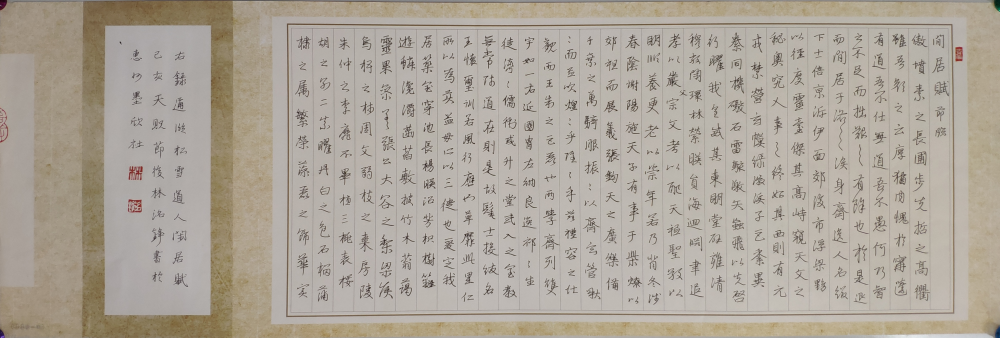 閒居賦 節臨
傲墳素之長圃步先哲之高衢
雖吾顏之云厚猶內愧於甯蘧
有道吾不仕無道吾不愚何巧智
之不足而拙艱之有餘也於是退
而閒居于洛之涘身齊逸人名綴
下士倍京泝伊面郊後市浮梁黝
以徑度靈臺傑其高峙窺天文之
秘奧究人事之終始其西則有元
戎禁營玄幙綠徽谿子巨黍異
絭同機礮石雷駭激矢虻飛以先啓
行耀我皇威其東明堂辟雍清
穆敞閑環林縈映圓海迴淵聿追
孝以嚴宗文考以配天秪聖敬以
明順養更老以崇年若乃背冬涉
春陰謝陽施天子有事于柴燎以
郊祖而展義張鈞天之廣樂備
千乘之萬騎服振:以齊玄管啾
:而並吹煌:乎隱:乎茲禮容之壯
觀而王制之巨麗也兩學齊列雙
宇如一右延國胄左納良逸祁:生
徒濟:儒術或升之堂或入之室教
無常師道在則是故髦士投紱名
王懷璽訓若風行應如草靡此里仁
所以為美孟母所以三徙也爰定我
居築室穿池長楊映沼芳枳樹籬
遊鱗瀺灂菡萏敷披竹木蓊藹
靈果參差張公大谷之梨梁侯
烏椑之柿周文弱枝之棗房陵
朱仲之李靡不畢植三桃表櫻
胡之別二柰曜丹白之色石榴蒲
桃之屬繁榮藻麗之飾華實
右錄趙松雪道人閒居賦
己亥天貺節後林鋒書於
惠州墨欣社